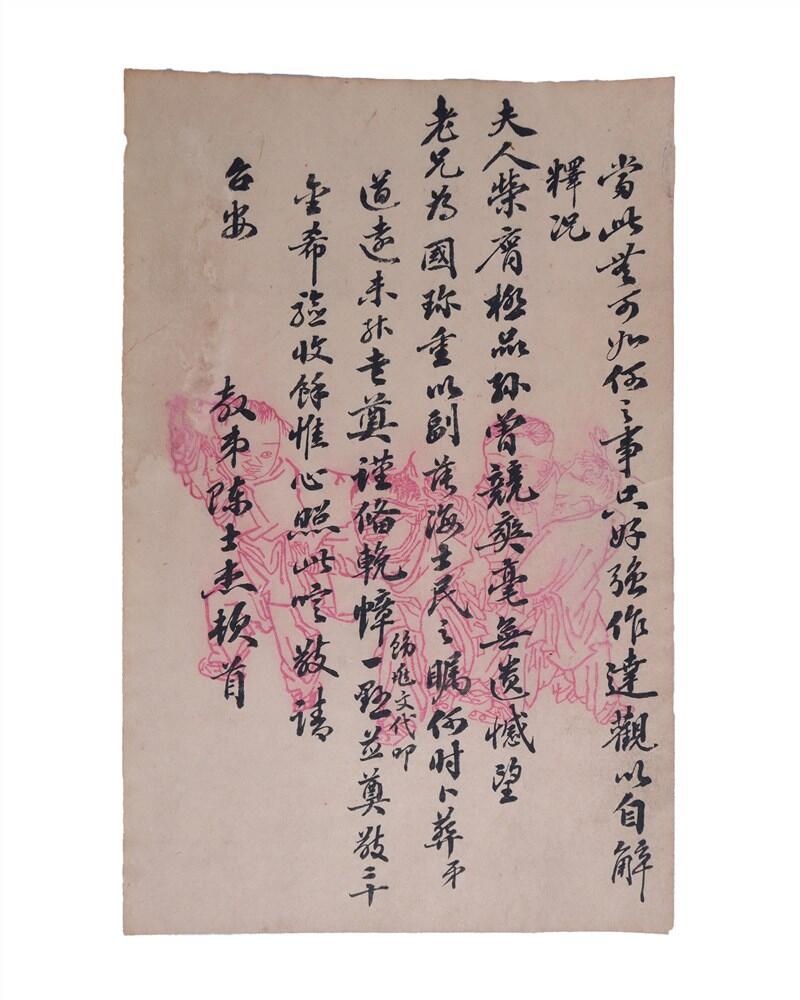 當此無可如何之事只好强作達觀以自解
釋况
夫人榮膺極品孫曾競爽毫無遺憾望
老兄為國珍重以副薄海士民之矚何時卜葬弟
道遠未能走奠謹備輓幛一懸並奠敬二十
飭家文代叩
金希驗收餘惟心照此唁敬請
台安
教弟陳士杰頓首